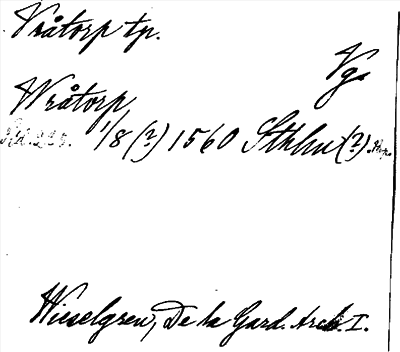 Vråtorp tp.
Vgs
Wråtorp
1/8 (?) 1560 Sthlm (?).
Wieselgren, De la Gard. Arch. I.